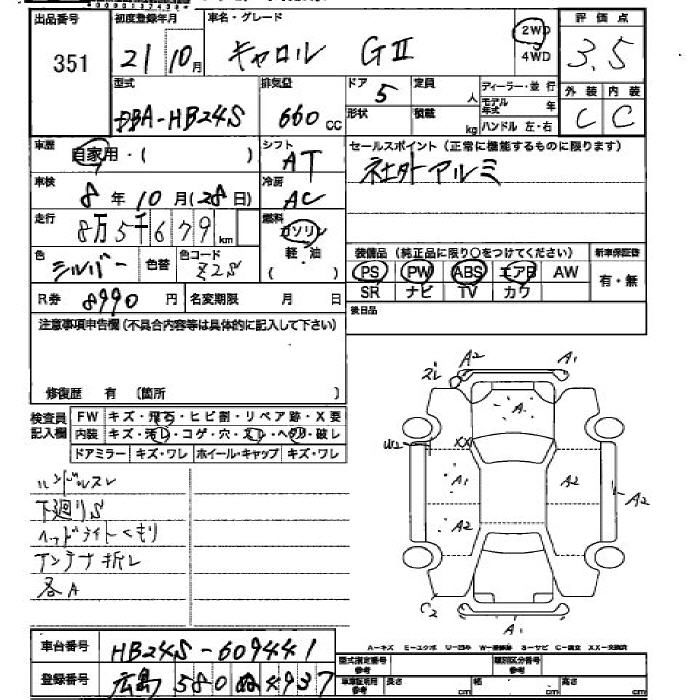 出品番号 初度登録年月 車名・グレード 2WD 4WD 評価点
351 21 10月 キャロル GⅡ 3.5
外装 内装
C C
型式 排気量 ドア 定員 ディーラー・並行
DBA-HB24S 660cc 5 人 モデル年式 年
形状 積載 kg ハンドル 左・右
車歴 自家用・( ) シフト AT セールスポイント(正常に機能するものに限ります)
社外アルミ
車検 8年10月(28日) 冷房 AC
走行 8万5千679km 燃料 ガソリン 軽・油 ( )
色 シルバー 色替 色コード Z2S
装備品(純品に限り○をつけてください) 新車保証書
PS PW ABS エアB AW 有・無
SR ナビ TV カワ
R券 8990円 名変期限 月 日 後日品
注意事項申告欄(不具合内容等は具体的に記入して下さい)
修復歴 有 〔箇所 〕
検査員記入欄 FW キズ・飛石・ヒビ割・リペア跡・X要
内装 キズ・汚レ・コゲ・穴・スレ・ヘタリ・破レ
ドアミラー キズ・ワレ ホイール・キャップ キズ・ワレ
ハンドルスレ
下廻りS
ヘッドライトくもり
アンテナ折レ
各A
A2 A1
スレ
A
XX
A1 A2 A2
A2
C2
A1
A-キズ E-エクボ U-凹み W-補修跡 S-サビ C-腐食 XX-交換済
車台番号 HB24S-609441
登録番号 広島 580 ぬ 4937
型式指定番号 参考 類別区分番号 参考
車庫証明用 参考 長さ cm 幅 cm 高さ cm